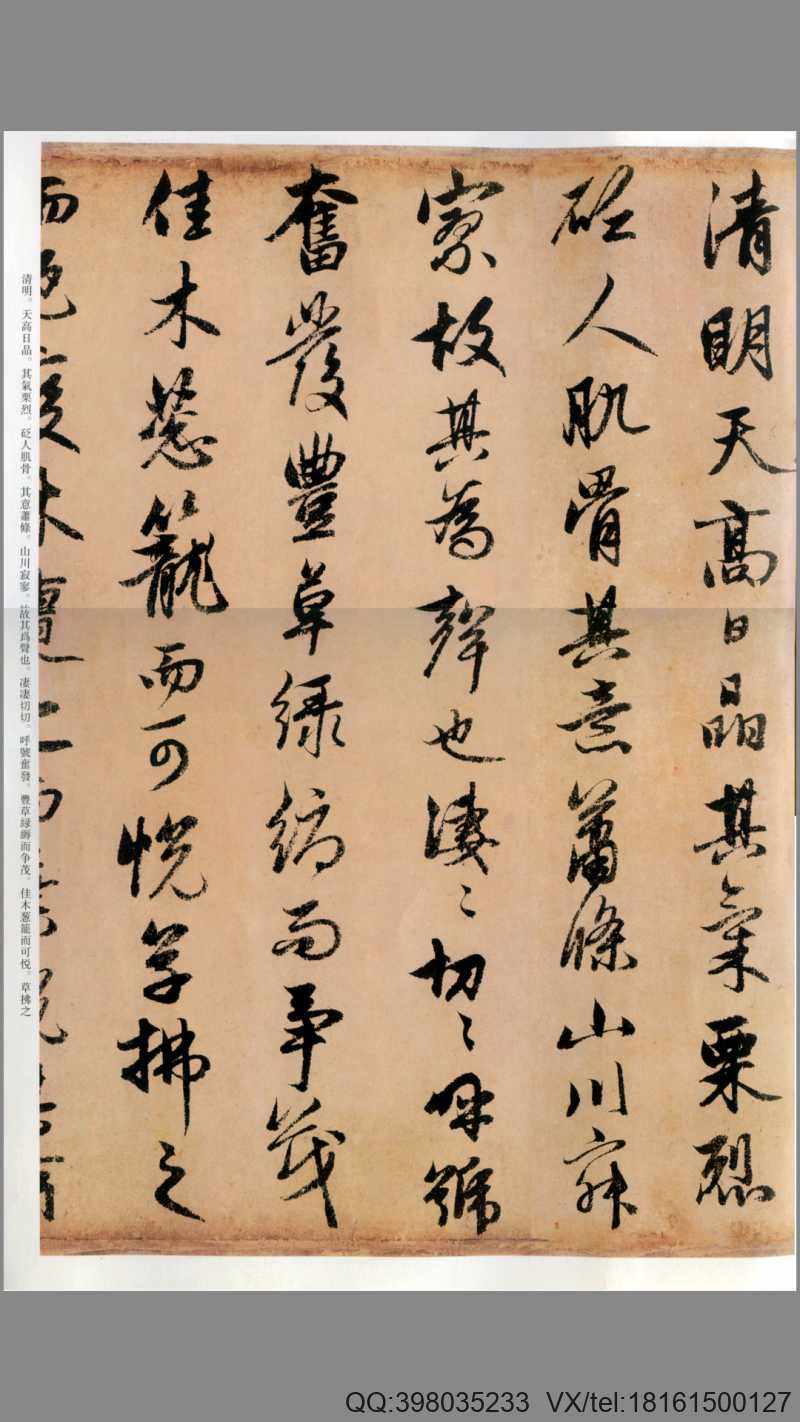 清明天高日晶其氣栗烈
砭人肌骨其意蕭條山川寂
寥故其為聲也淒〻切〻呼號
奮發豐草綠縟而爭茂
佳木蔥籠而可悅草拂之
而色變木遭之而葉脫其所
清明。天高日晶。其氣栗烈。砭人肌骨。其意蕭條。山川寂寥。故其爲聲也。淒淒切切。呼號奮發。豐草緑縟而争茂。佳木葱籠而可悦。草拂之
QQ:398035233 VX/tel:18161500127